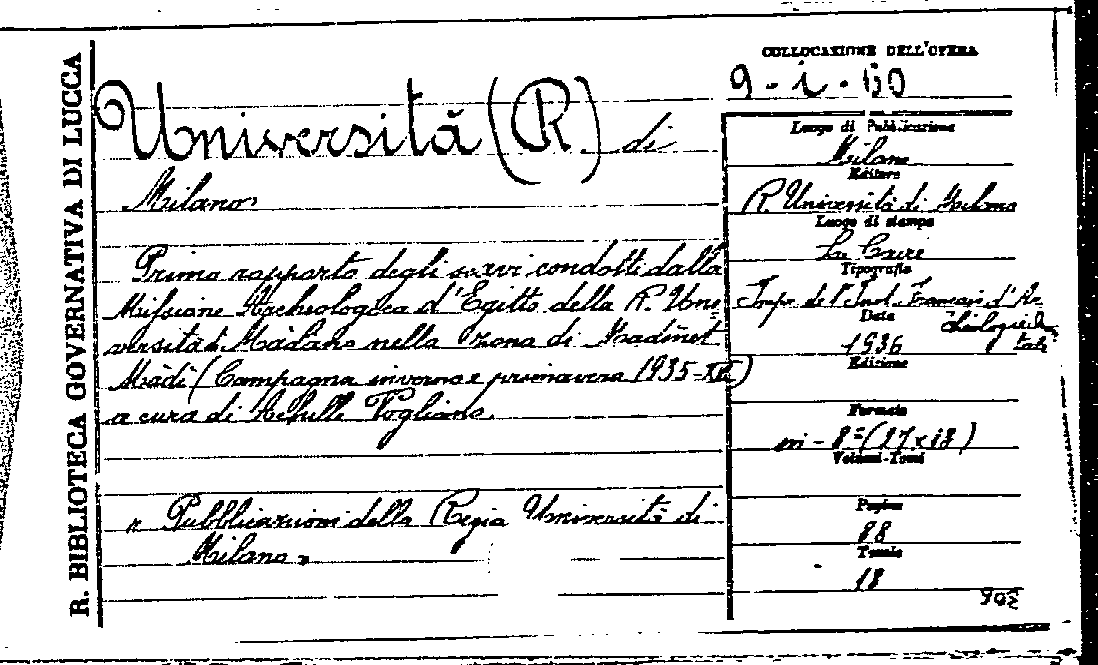 R. BIBLIOTECA GOVERNATIVA DI LUCCA
COLLOCAZIONE DELL'OPERA
Università (R.) di
Milano.
Primo rapporto degli scavi condotti dalla
Missione Archeologica d'Egitto della R. Uni
versità di Milano nella zona di Madinet
Madi (Campagna inverno e primavera 1935-XIII)
a cura di Achille Vogliano.
" Pubblicazioni della Regia Università di
Milano "
Luogo di Pubblicazione
Milano
Editore
R. Università di Milano
Luogo di stampa
Le Caire
Tipografia
Impr. de l'Inst. Français d'Ar
chéologie
Data
1936
Edizione
Formato
in-8° (27x18)
Volumi-Tomi
Pagine
88
Tavole
18